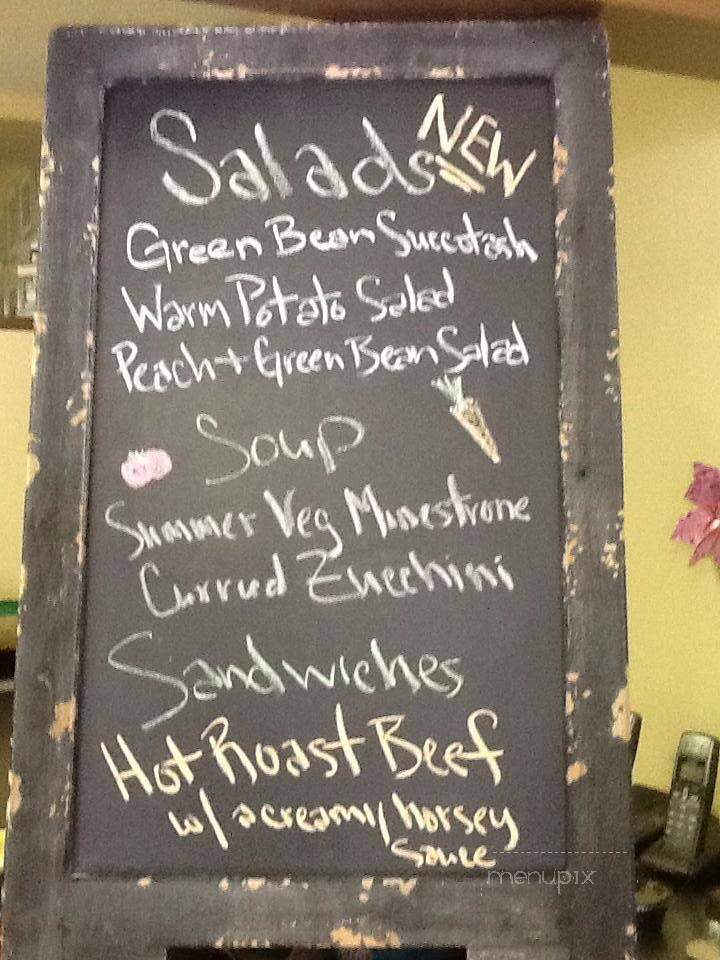 Salads NEW
Green Bean Succotash
Warm Potato Salad
Peach + Green Bean Salad
Soup
Summer Veg Minestrone
Curried Zucchini
Sandwiches
Hot Roast Beef
w/ a creamy horsey
sauce
menupix